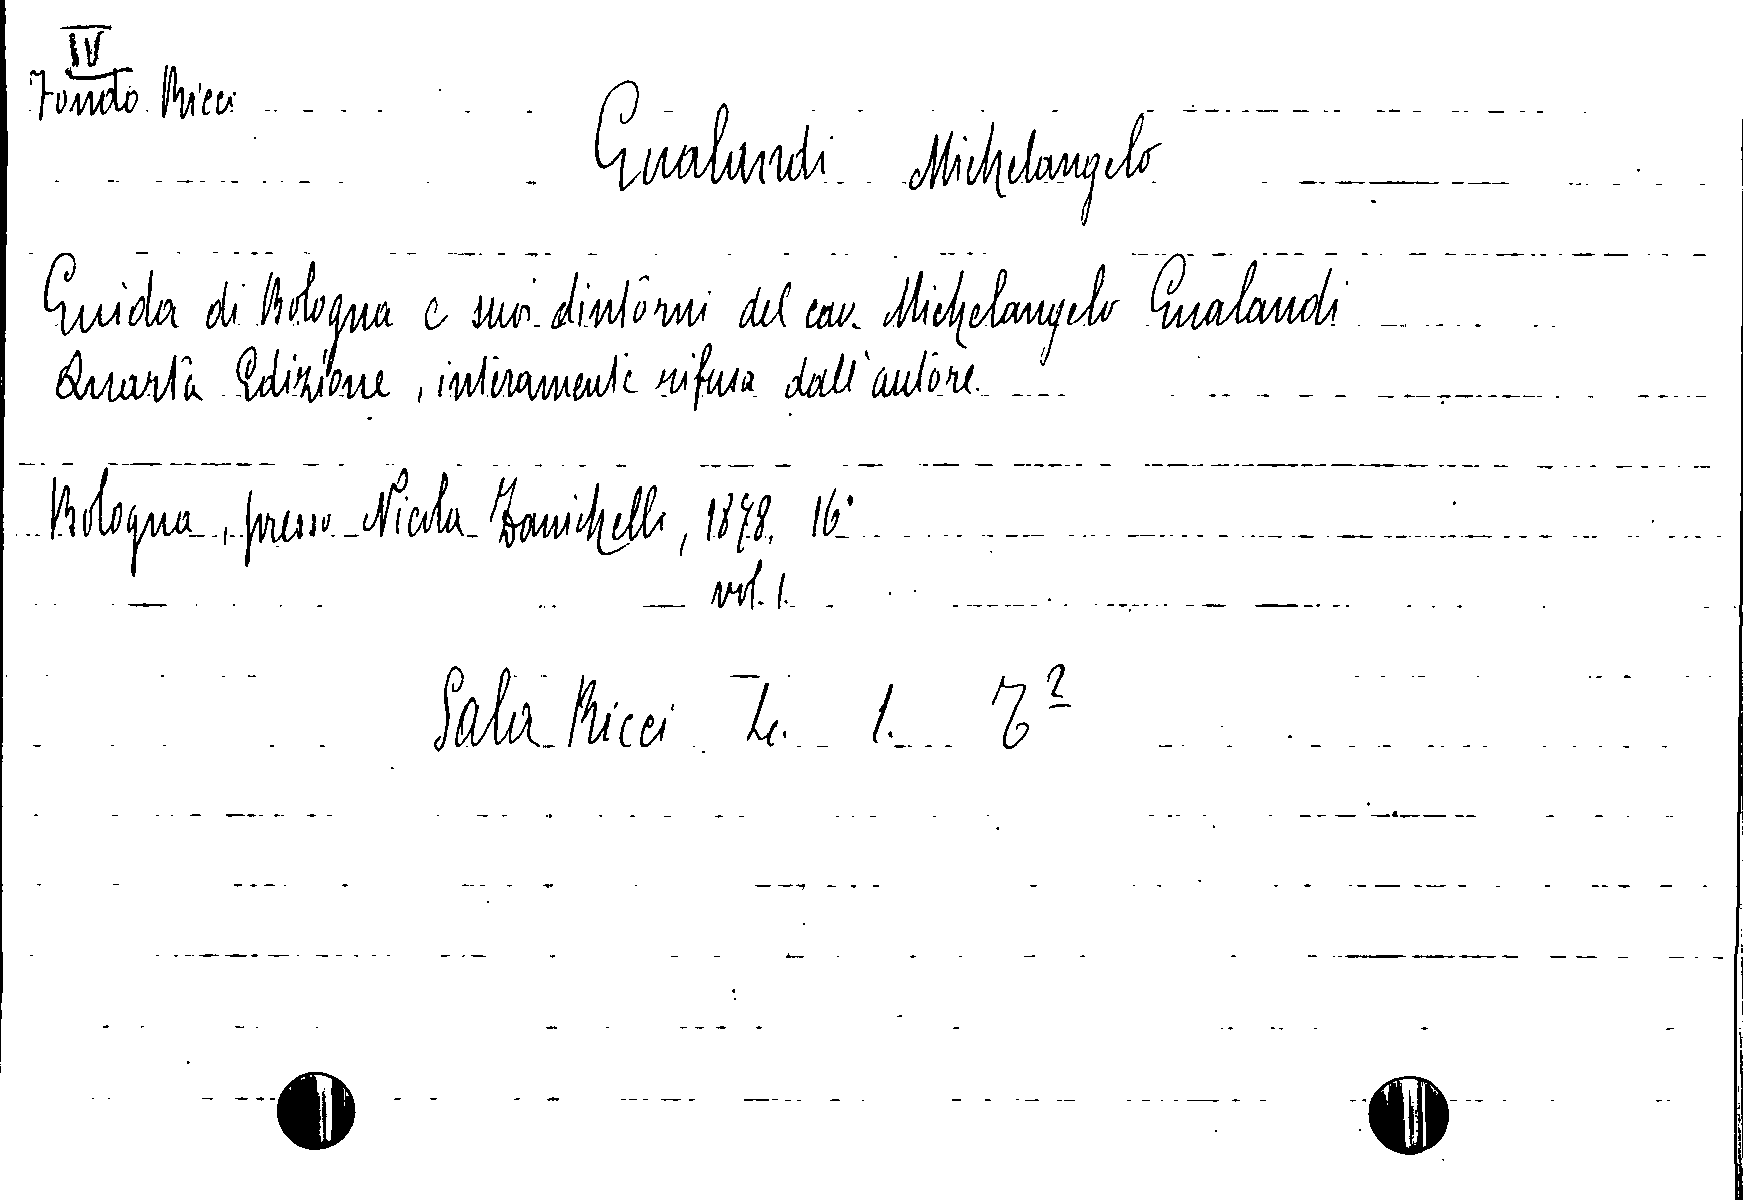 IV
Fondo Ricci
Gualandi Michelangelo
Guida di Bologna e suoi dintorni del cav. Michelangelo Gualandi
Quarta Edizione, interamente rifusa dall'autore.
Bologna, presso Nicola Zanichelli, 1878. 16°
vol. 1.
Sala Ricci 1.